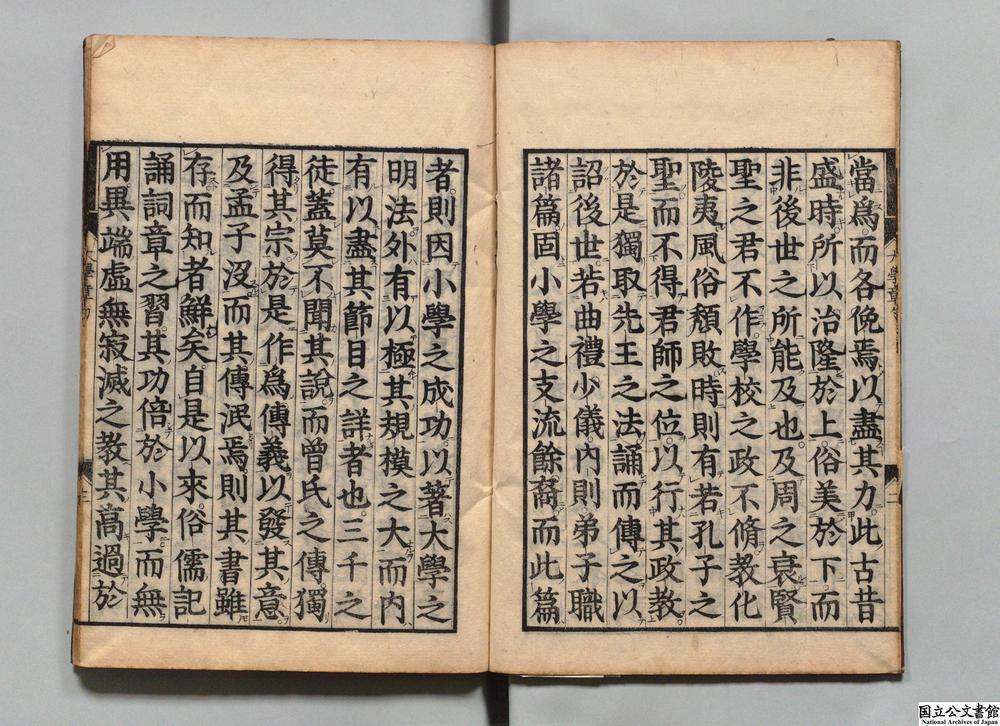 當爲而各俛焉以盡其力此古昔
盛時所以治隆於上俗美於下而
非後世之所能及也及周之衰賢
聖之君不作學校之政不脩敎化
陵夷風俗頽敗時則有若孔子之
聖而不得君師之位以行其政敎
於是獨取先王之法誦而傳之以
詔後世若曲禮少儀內則弟子職
諸篇固小學之支流餘裔而此篇
者則因小學之成功以著大學之
明法外有以極其規模之大而內
有以盡其節目之詳者也三千之
徒蓋莫不聞其說而曾氏之傳獨
得其宗於是作爲傳義以發其意
及孟子沒而其傳泯焉則其書雖
存而知者鮮矣自是以來俗儒記
誦詞章之習其功倍於小學而無
用異端虛無寂滅之敎其高過於
大學章句
国立公文書館
National Archives of Japan